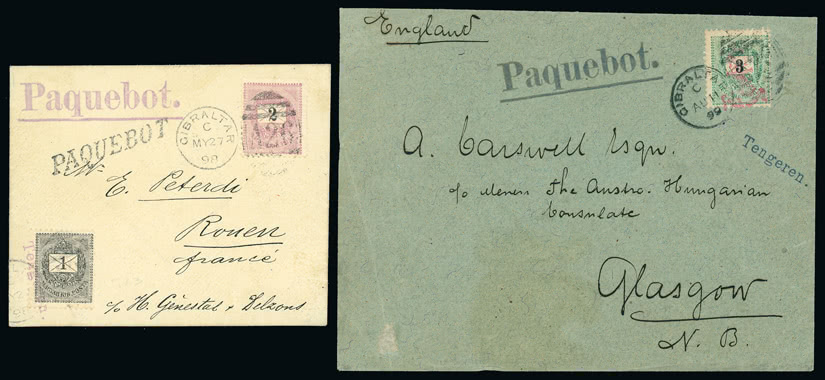 Paquebot.
PAQUEBOT
GIBRALTAR
C
MY27
98
2
A26
E. Peterdi
Rouen
francé
1
c/o H. Génestal & Delzons
England
Paquebot.
GIBRALTAR
C
99
3
Tengeren.
A. Carswell Esqu.
c/o Messrs The Austro-Hungarian
Consulate
Glasgow
N. B.